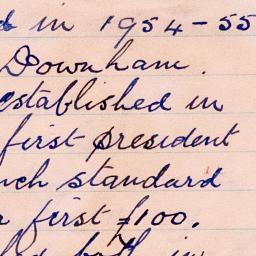 in 1954-55
Downham.
established in
first president
standard
first £100.
both in